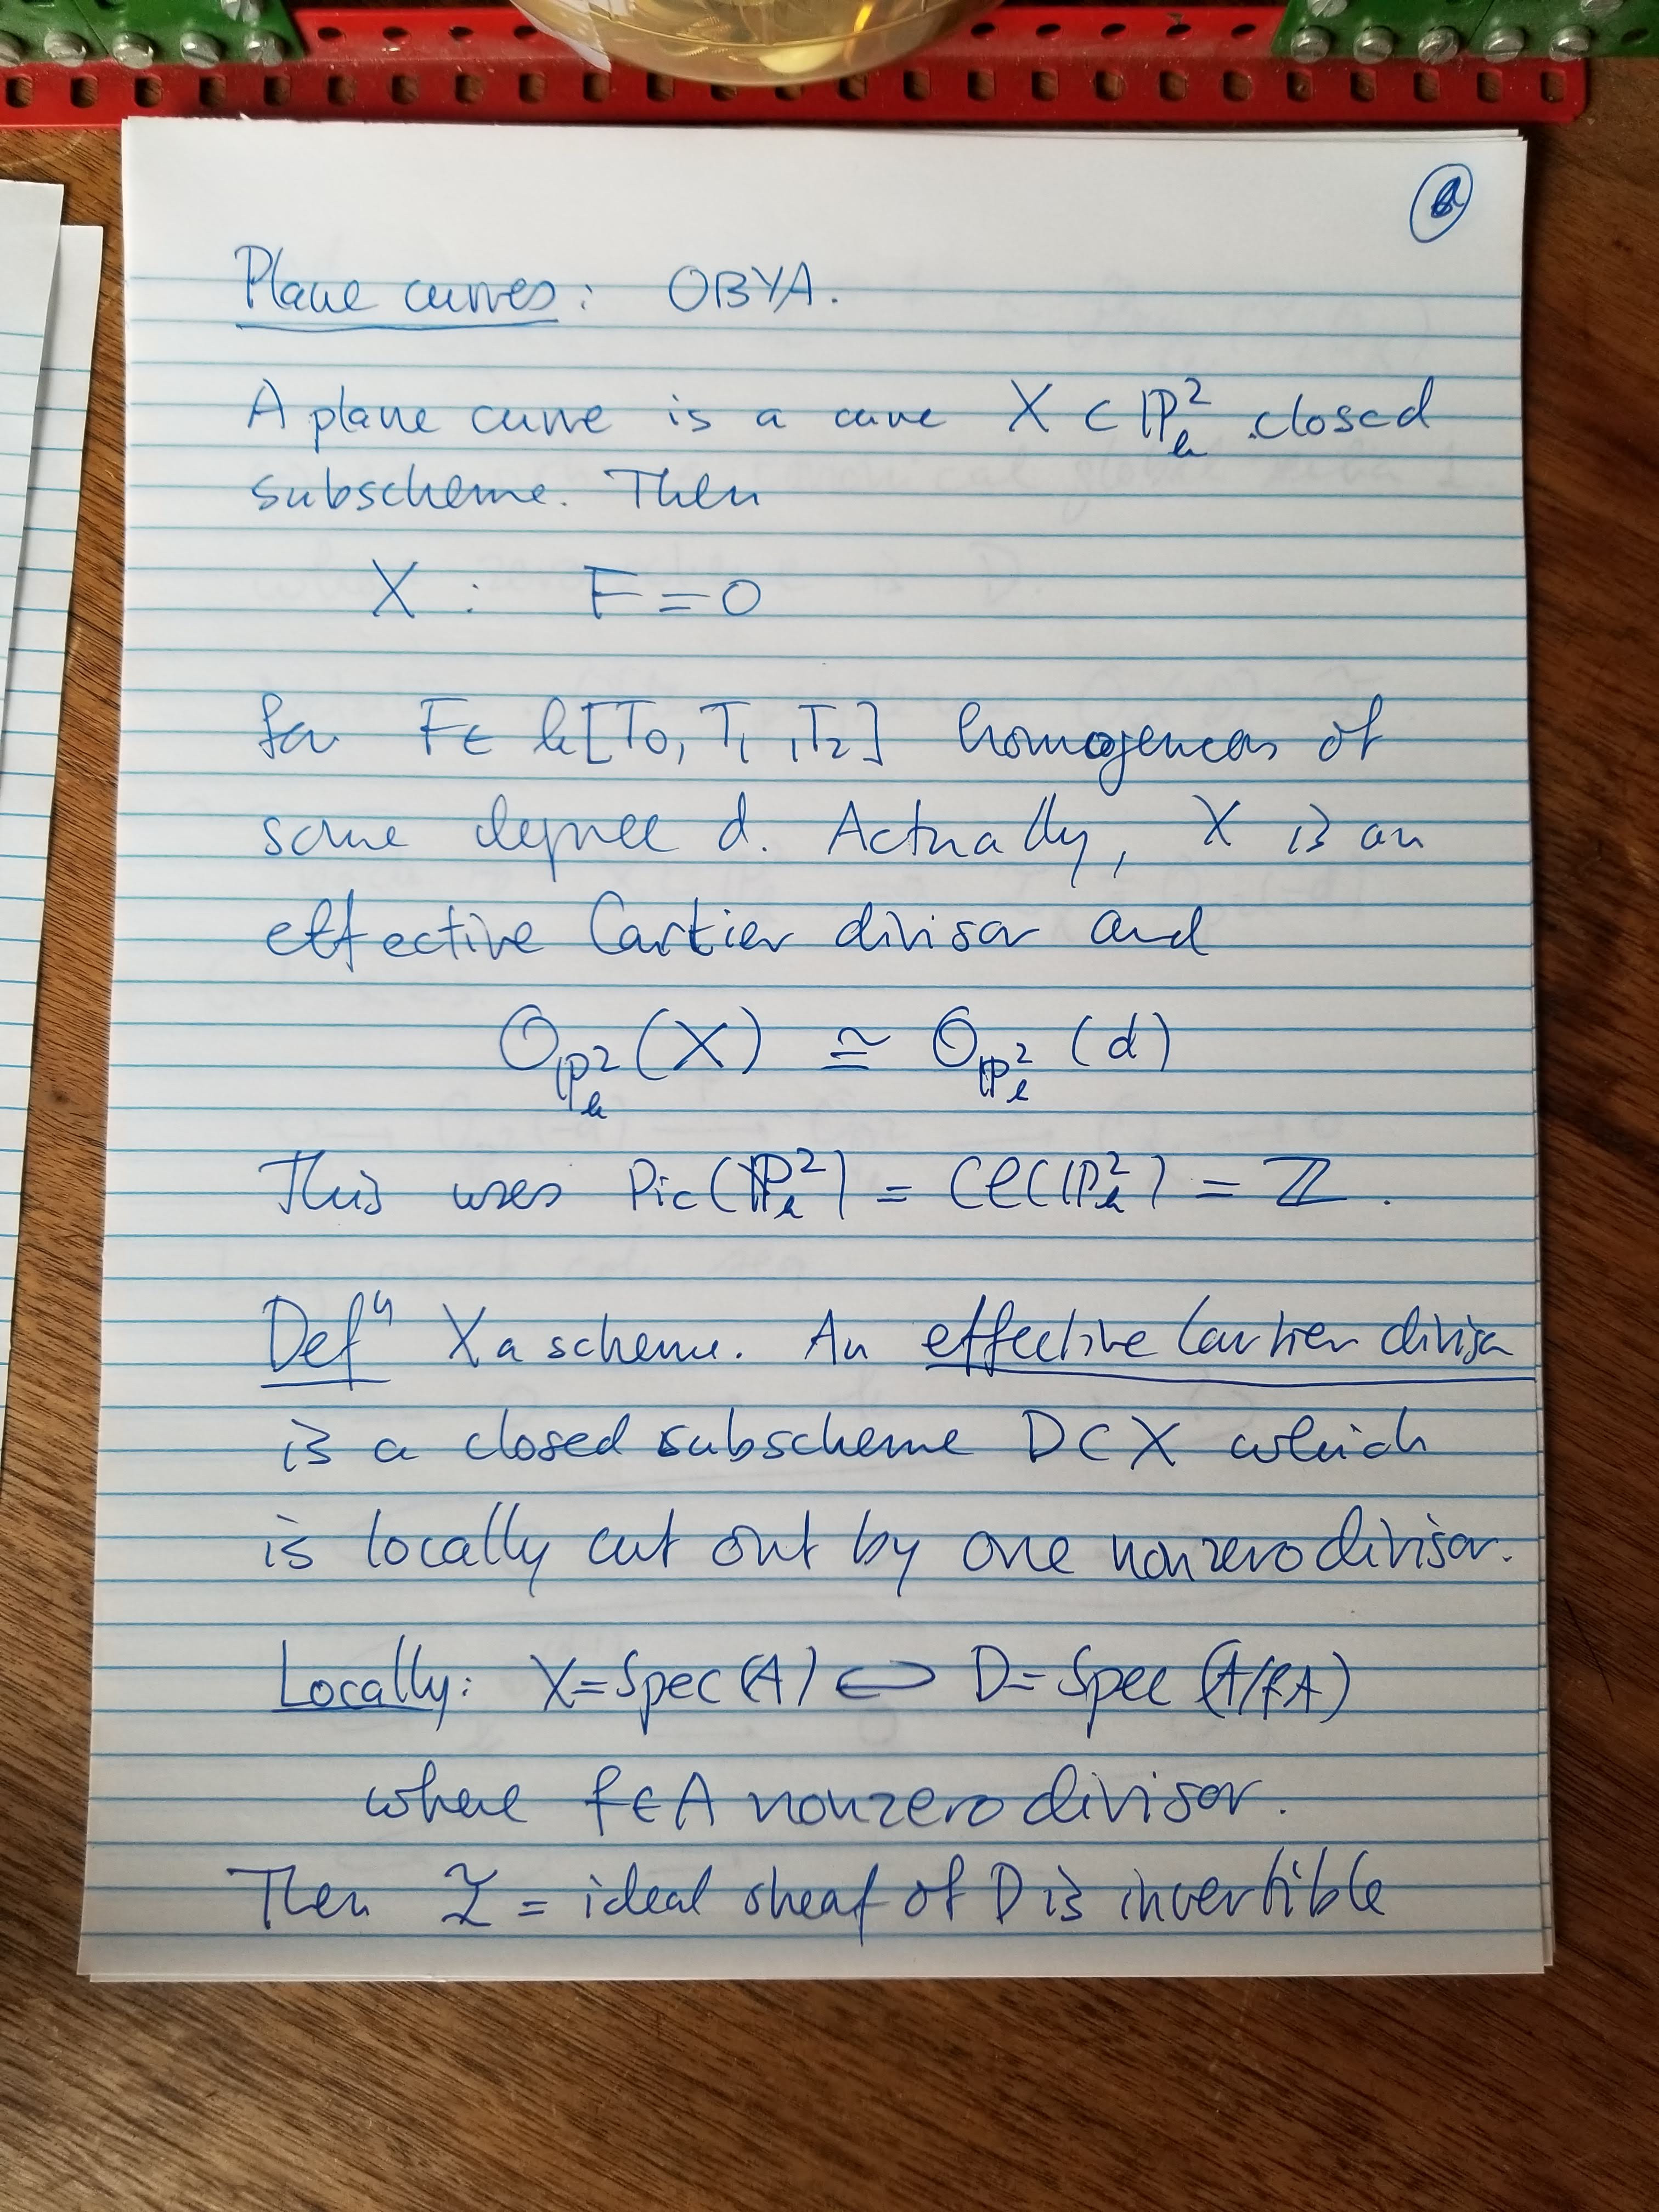 Plane curves: OBYA.
A plane curve is a curve X ⊂ ℙ²ₖ closed
subscheme. Then
X : F = 0
for F ∈ k[T₀, T₁, T₂] homogeneous of
some degree d. Actually, X is an
effective Cartier divisor and
O_{ℙ²ₖ}(X) ≅ O_{ℙ²ₖ}(d)
This uses Pic(ℙ²ₖ) = Cl(ℙ²ₖ) = ℤ.
Defⁿ X a scheme. An effective Cartier divisor
is a closed subscheme D ⊂ X which
is locally cut out by one nonzerodivisor.
Locally: X = Spec(A) ↩ D = Spec(A/fA)
where f ∈ A nonzerodivisor.
Then I = ideal sheaf of D is invertible